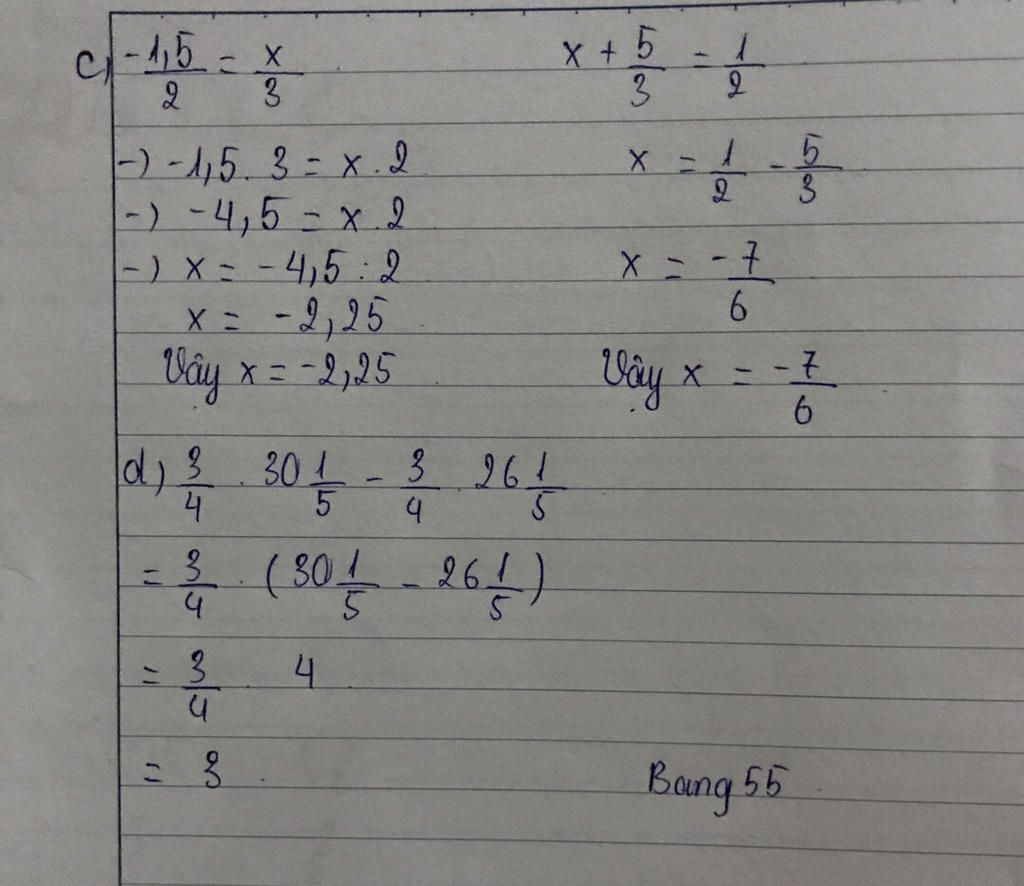 c) -1,5/2 = x/3
-) -1,5 . 3 = x . 2
-) -4,5 = x . 2
-) x = -4,5 : 2
x = -2,25
Vây x = -2,25
x + 5/3 = 1/2
x = 1/2 - 5/3
x = -7/6
Vây x = -7/6
d) 3/4 . 30 1/5 - 3/4 . 26 1/5
= 3/4 . (30 1/5 - 26 1/5)
= 3/4 . 4
= 3
Bang 55